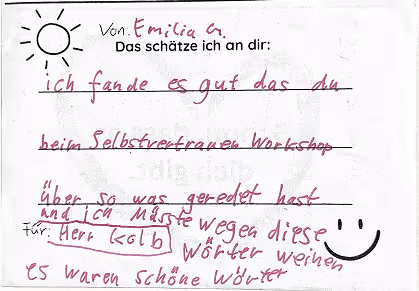 Von: Emilia G.
Das schätze ich an dir:
ich fande es gut das du
beim Selbstvertrauen Workshop
über so was geredet hast
und ich müsste wegen diese
Für: Herr Kalb
wörter weinen
es waren schöne wörter